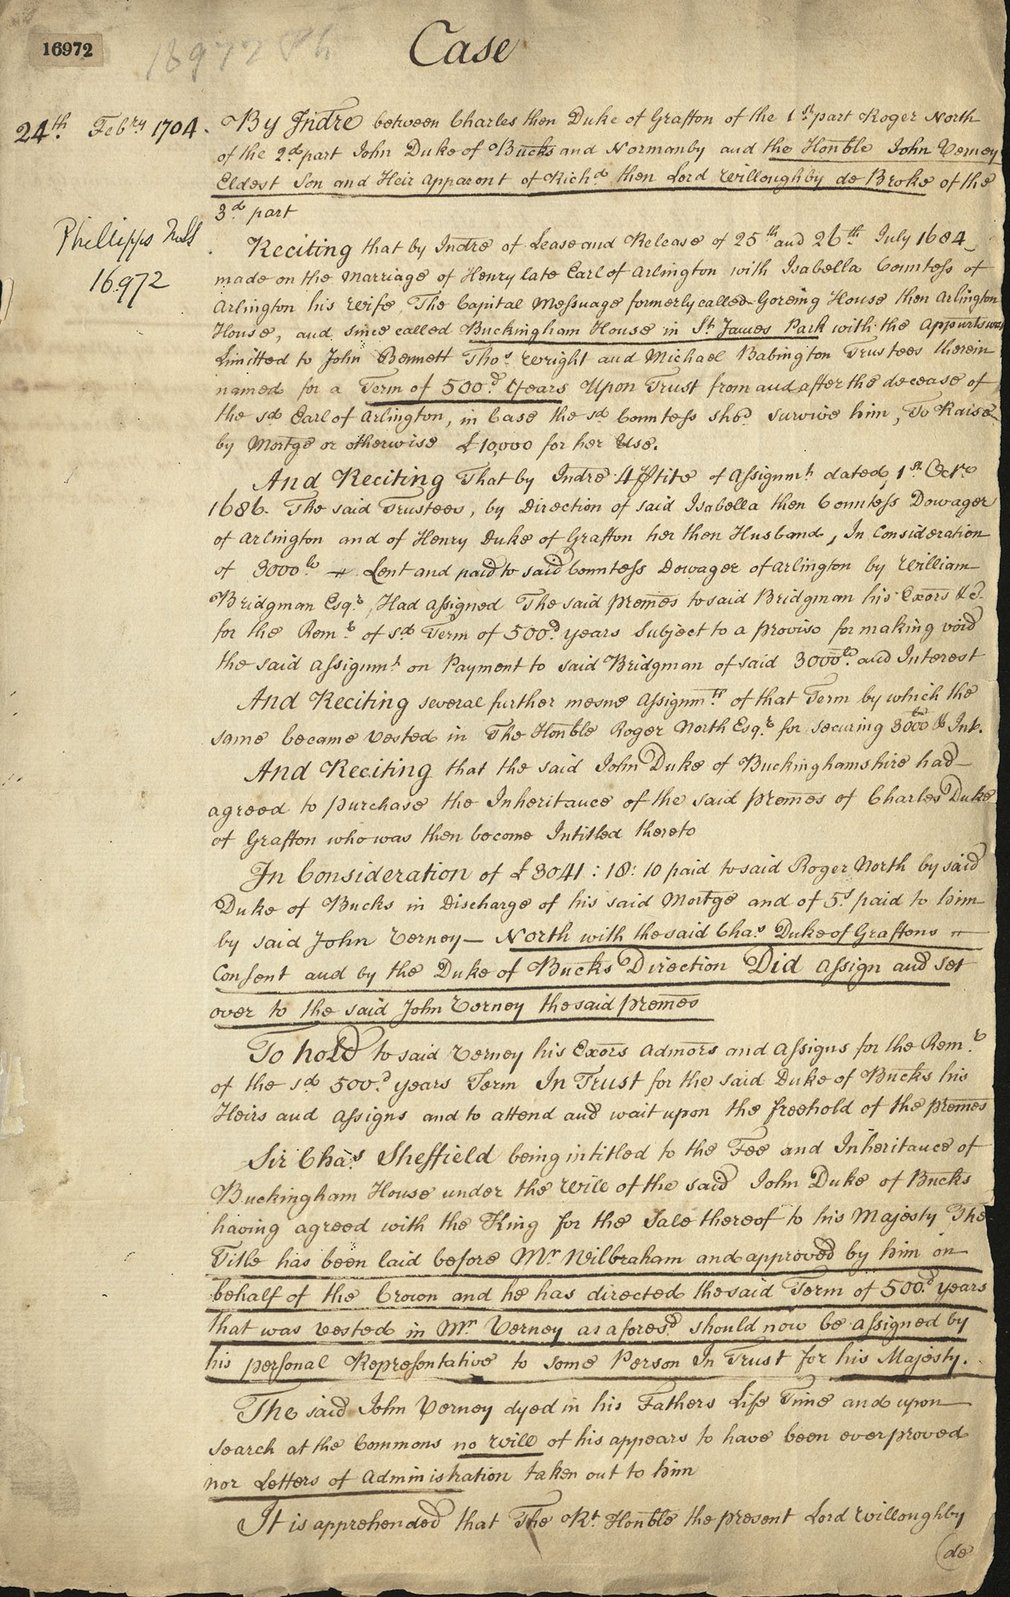 16972
16972 Ph
Case
24th. Febry 1704.
By Indre between Charles then Duke of Grafton of the 1st part Roger North
of the 2d part John Duke of Bucks and Normanby and the Honble John Verney
Eldest Son and Heir Apparent of Richd then Lord Willoughby de Broke of the
3d part
Phillipps MSS
16972
Reciting that by Indre of Lease and Release of 25th and 26th July 1684
made on the Marriage of Henry late Earl of Arlington with Isabella Countess of
Arlington his Wife The Capital Messuage formerly called Goreing House then Arlington
House, and since called Buckingham House in St James Park with the Appurts was
Limitted to John Bennett Thos Wright and Michael Babington Trustees therein
named for a Term of 500d Years Upon Trust from and after the decease of
the sd Earl of Arlington, in Case the sd Countess shod survive him, To Raise
by Mortge or otherwise £10,000 for her Use.
And Reciting That by Indre 4 Ptite of Assignmt dated 1st Octr
1686. The said Trustees, by Direction of said Isabella then Countess Dowager
of Arlington and of Henry Duke of Grafton her then Husband, In Consideration
of 3000lb Lent and paid to said Countess Dowager of Arlington by William
Bridgman Esqr, Had Assigned The said premes to said Bridgman his Exors &c.
for the Remr of sd Term of 500d years Subject to a proviso for making void
the said Assignmt on Payment to said Bridgman of said 3000lb. and Interest
And Reciting several further mesne Assignmts of that Term by which the
same became vested in The Honble Roger North Esqr for securing 3000lb & Int.
And Reciting that the said John Duke of Buckinghamshire had
agreed to purchase the Inheritance of the said premes of Charles Duke
of Grafton who was then become Intitled thereto
In Consideration of £3041: 18: 10 paid to said Roger North by said
Duke of Bucks in Discharge of his said Mortge and of 5s paid to him
by said John Verney — North with the said Chas Duke of Graftons
Consent and by the Duke of Bucks Direction Did Assign and set
over to the said John Verney the said premes
To hold to said Verney his Exors Admors and Assigns for the Remr
of the sd 500d years Term In Trust for the said Duke of Bucks his
Heirs and Assigns and to attend and wait upon the freehold of the premes
Sir Chas Sheffield being intitled to the Fee and Inheritance of
Buckingham House under the Will of the said John Duke of Bucks
having agreed with the King for the Sale thereof to his Majesty The
Title has been laid before Mr Wilbraham and approved by him on
behalf of the Crown and he has directed the said Term of 500d years
that was vested in Mr Verney as aforesd should now be assigned by
his personal Representative to some Person In Trust for his Majesty.
The said John Verney dyed in his Fathers Life Time and upon
search at the Commons no Will of his appears to have been ever proved
nor Letters of Administration taken out to him
It is apprehended that The Rt Honble the present Lord Willoughby
de